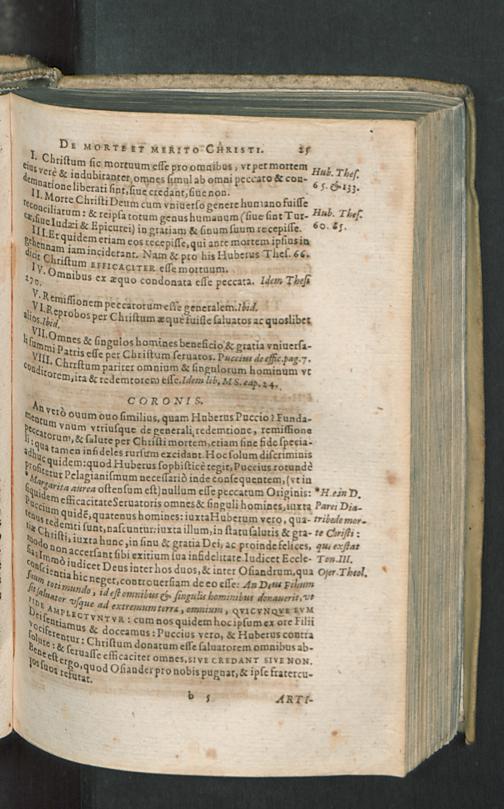 DE MORTE ET MERITO CHRISTI. 25
I. Christum sic mortuum esse pro omnibus, vt per mortem
eius verè & indubitanter omnes simul ab omni peccato & con-
demnatione liberati sint, siue credant, siue non.
Hub. Thes.
65. & 133.
II. Morte Christi Deum cum vniuerso genere humano fuisse
reconciliatum: & reipsa totum genus humanum (siue sint Tur-
cæ, siue Iudæi & Epicurei) in gratiam & sinum suum recepisse.
Hub. Thes.
60. 85.
III. Et quidem etiam eos recepisse, qui ante mortem ipsius in
gehennam iam inciderant. Nam & pro his Huberus Thes. 66.
dicit Christum EFFICACITER esse mortuum.
IV. Omnibus ex æquo condonata esse peccata. Idem Thesi
270.
V. Remissionem peccatorum esse generalem. Ibid.
VI. Reprobos per Christum æque fuisse saluatos ac quoslibet
alios. Ibid.
VII. Omnes & singulos homines beneficio & gratia vniuersa-
li summi Patris esse per Christum seruatos. Puccius de effic. pag. 7.
VIII. Christum pariter omnium & singulorum hominum vt
conditorem, ita & redemtorem esse. Idem lib. MS. cap. 24.
CORONIS.
An verò ouum ouo similius, quam Huberus Puccio? Funda-
mentum vnum vtriusque de generali redemtione, remissione
peccatorum, & salute per Christi mortem, etiam sine fide specia-
li: qua tamen infideles rursum excidant. Hoc solum discriminis
adhuc quidem: quod Huberus sophisticè tegit, Puccius rotundè
profitetur Pelagianismum necessariò inde consequentem, (vt in
* Margarita aurea ostensum est) nullum esse peccatum Originis:
siquidem efficacitate Seruatoris omnes & singuli homines, iuxta
Puccium quidē, quatenus homines: iuxta Huberum vero, qua-
tenus redemti sunt, nascuntur: iuxta illum, in statu salutis & gra-
tiæ Christi, iuxta hunc, in sinu & gratia Dei, ac proinde felices,
modo non accersant sibi exitium sua infidelitate. Iudicet Eccle-
sia: Immò iudicet Deus inter hos duos, & inter Osiandrum, qua
conscientia hic neget, controuersiam de eo esse: An Deus Filium
suum toti mundo, id est omnibus & singulis hominibus donauerit, vt
sit saluator vsque ad extremum terræ, omnium, QVICVNQVE EVM
FIDE AMPLECTVNTVR: cum nos quidem hoc ipsum ex ore Filii
Dei sentiamus & doceamus: Puccius vero, & Huberus contra
vociferentur: Christum donatum esse saluatorem omnibus ab-
solute: & seruasse efficaciter omnes, SIVE CREDANT SIVE NON.
Bene est ergo, quod Osiander pro nobis pugnat, & ipse fratercu-
los suos refutat.
* H. ein D.
Parei Dia-
tribe de mor-
te Christi:
qui exstat
Tom. III.
Oper. Theol.
b 5 ARTI-